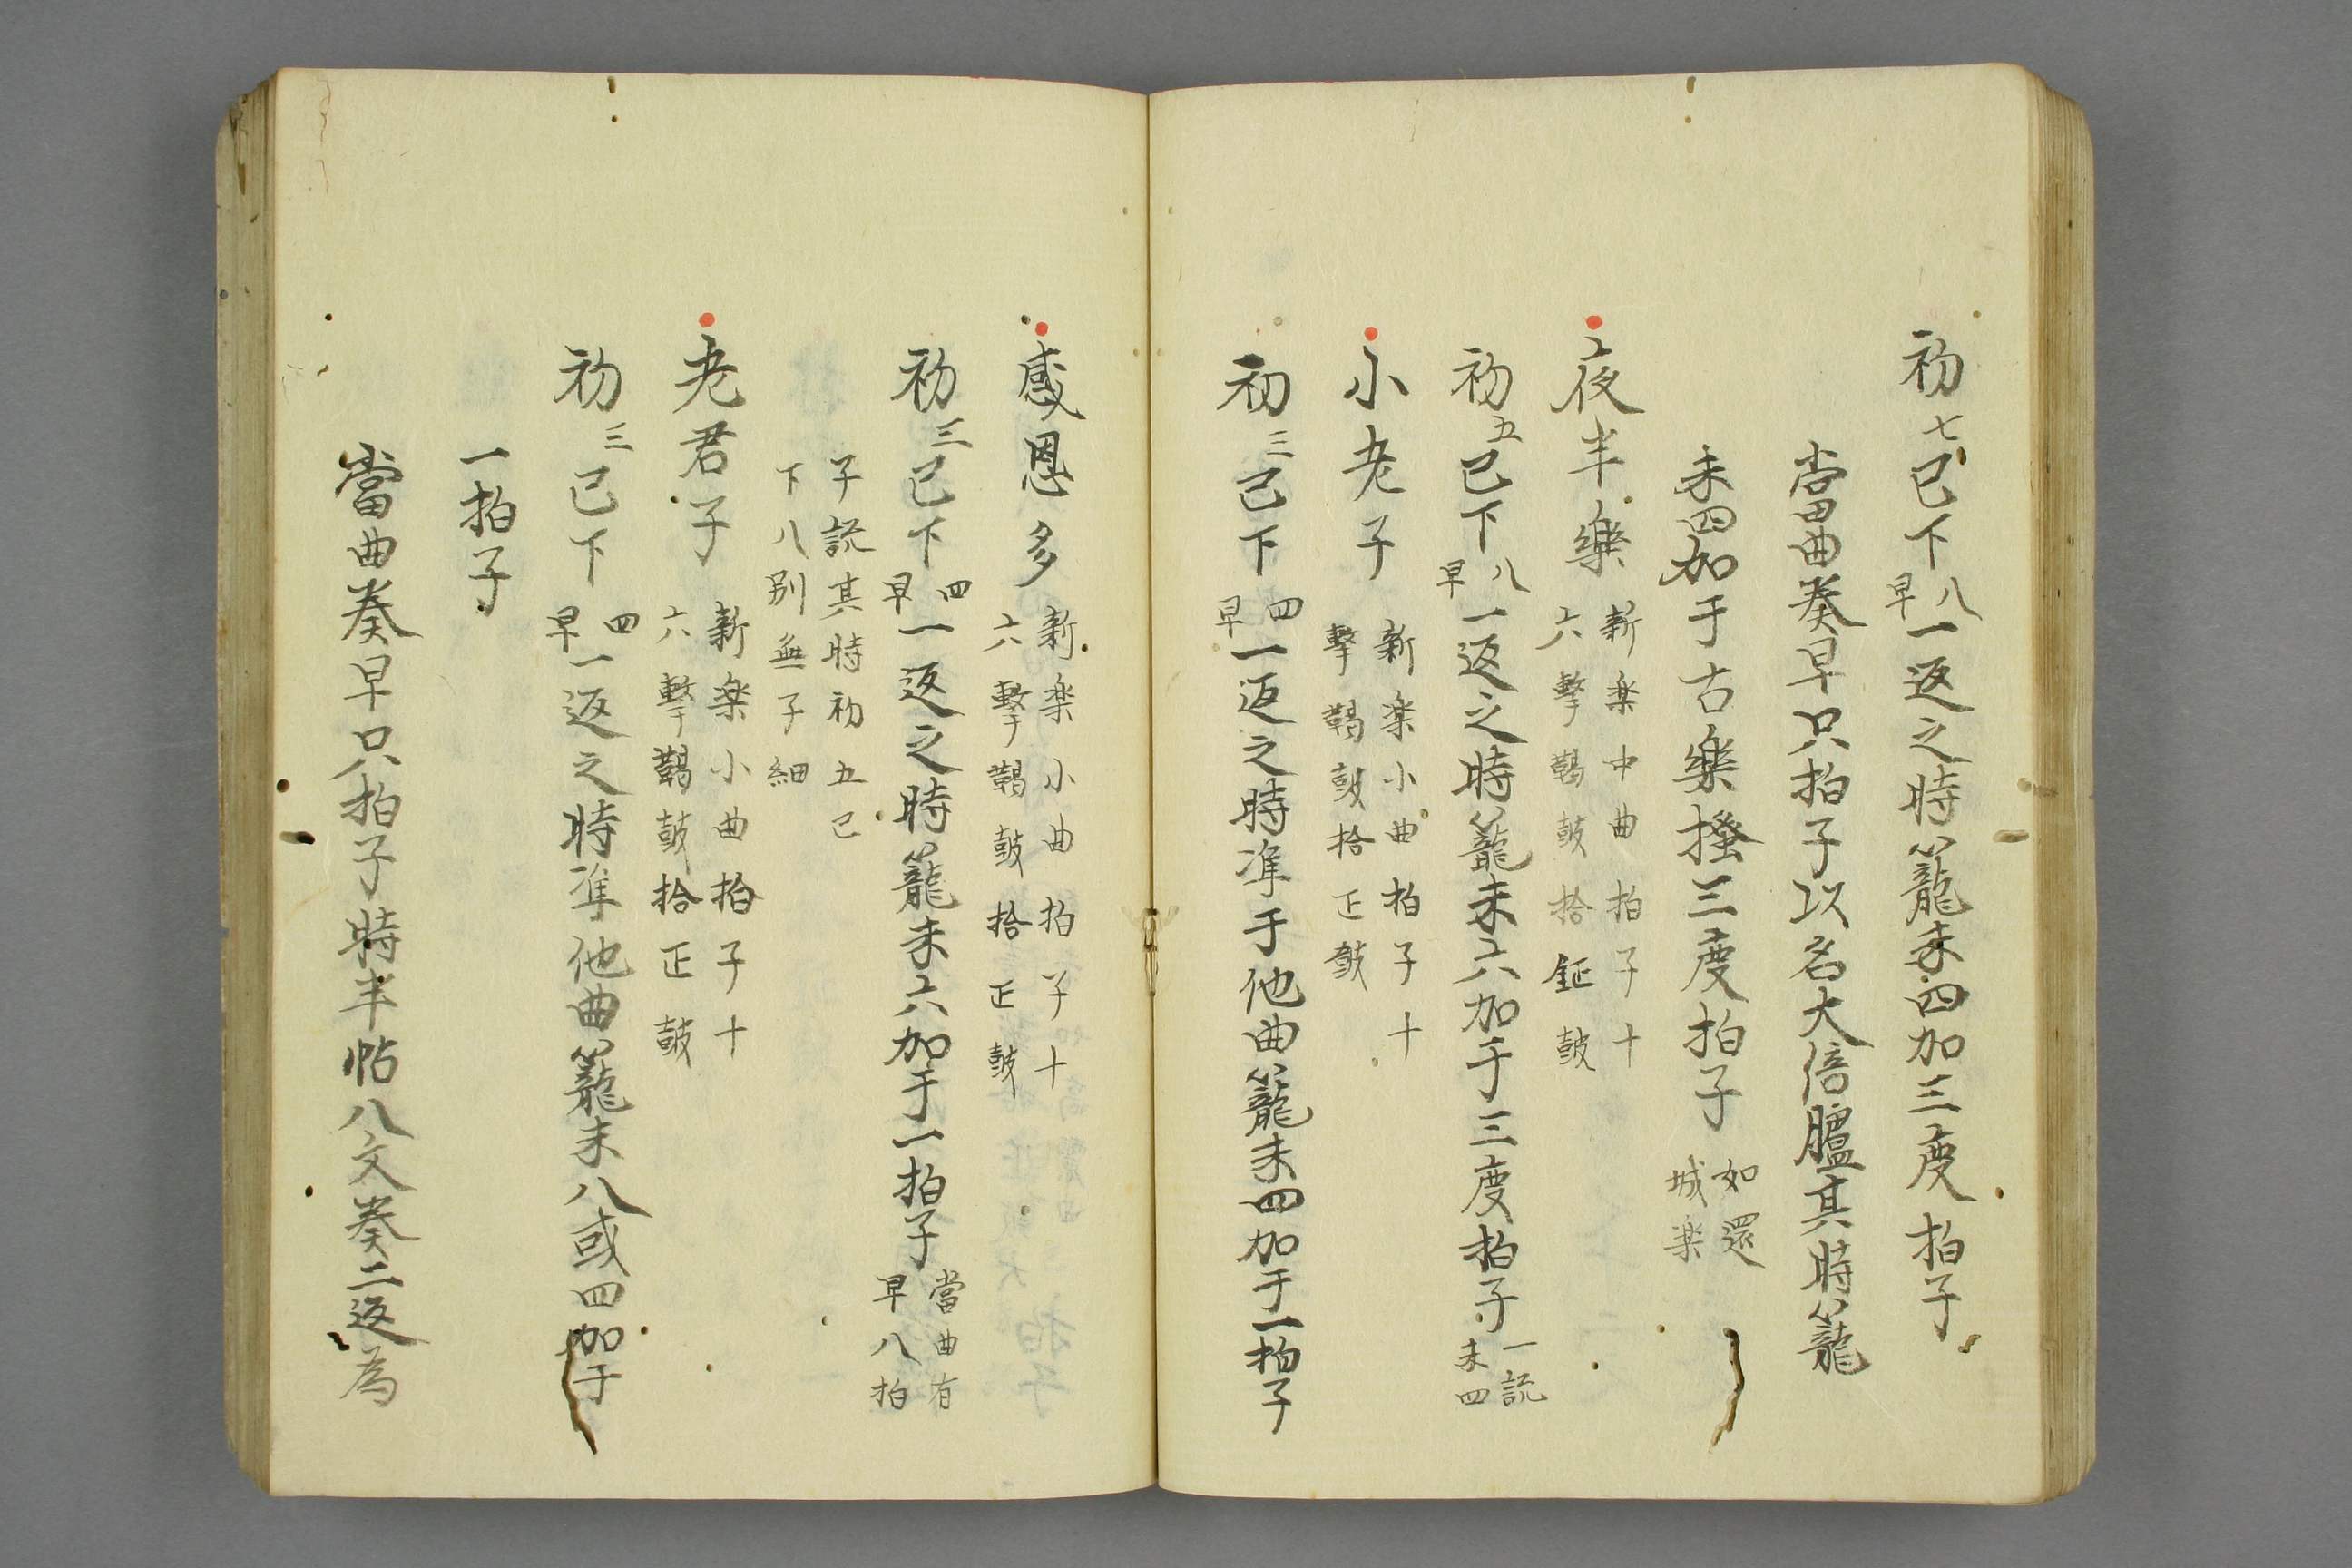 初七已下八早一返之時籠末四加三度拍子
當曲奏早只拍子以名大倍臚其時籠
末四加于古樂掻三度拍子如還城楽
夜半樂新楽中曲拍子十六擊鞨鼓拾鉦鼓
初五已下八早一返之時籠末六加于三度拍子一説末四
小老子新楽小曲拍子十擊鞨鼓拾正鼓
初三已下四早一返之時准于他曲籠末四加于一拍子
感恩多新楽小曲拍子十六擊鞨鼓拾正鼓
初三已下四早一返之時籠末六加于一拍子當曲有早八拍
子説其時初五已下八別無子細
老君子新楽小曲拍子十六擊鞨鼓拾正鼓
初三已下四早一返之時准他曲籠末八或四加于
一拍子
當曲奏早只拍子時半帖八文奏二返為